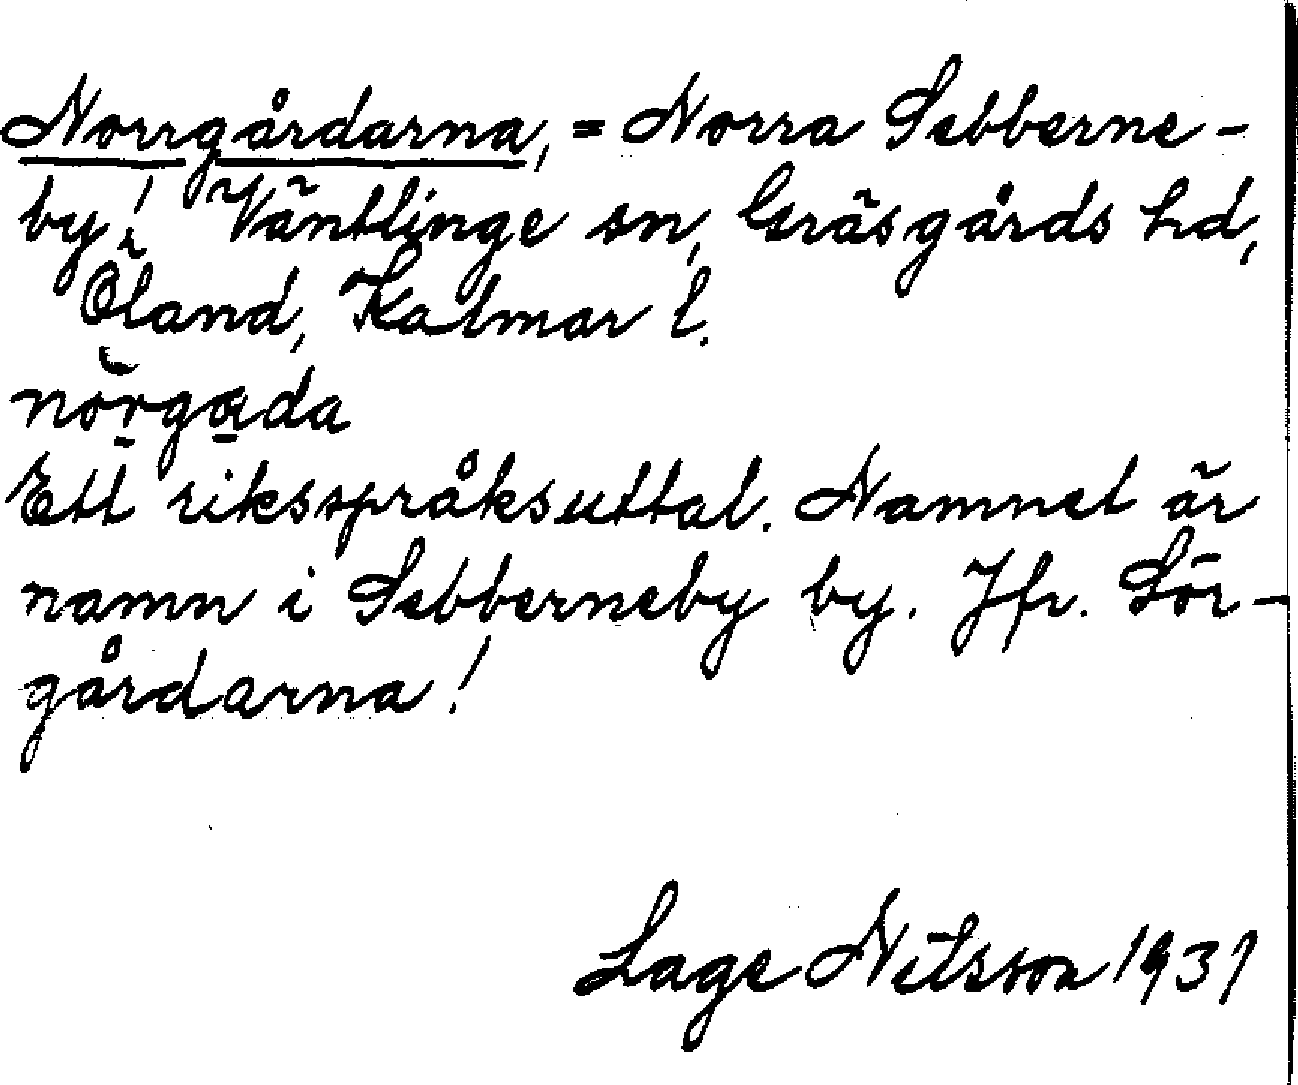 Norrgårdarna, = Norra Sebberne-
by! Väntlinge sn, Gräsgårds hd,
Öland, Kalmar l.
nörgɑda
Ett riksspråksuttal. Namnet är
namn i Sebberneby by. Jfr. Sör-
gårdarna!
Lage Nilsson 1931